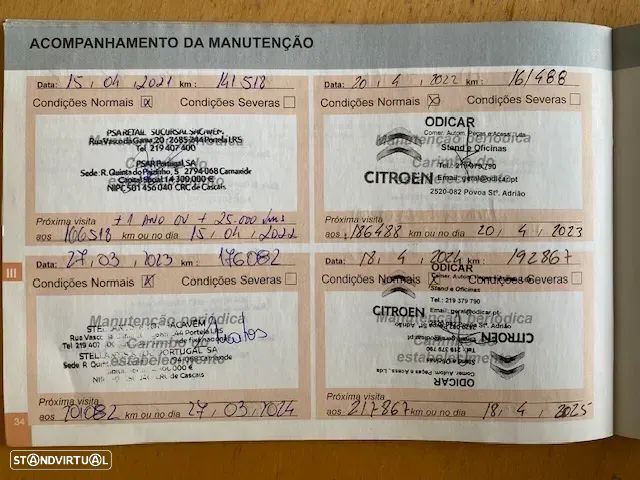 ACOMPANHAMENTO DA MANUTENÇÃO
Data: 15 , 04 , 2021 km : 141518
Condições Normais ☒ Condições Severas ☐
PSA RETAIL SUCURSAL SACAVEM
Rua Vasco da Gama 20 - 2685-244 Portela LRS
Tel. 219 407 400
PSAR Portugal, SA
Sede : R. Quinta do Paizinho, 5 2794-068 Carnaxide
Capital Social 14.300.000 €
NIPC 501 456 040 CRC de Cascais
Manutenção periódica
Carimbo do
Próxima visita + 1 ANO OU + 25.000 kms
aos 166518 km ou no dia 15 , 04 , 2022
Data: 20 , 4 , 2022 km : 161488
Condições Normais ☒ Condições Severas ☐
ODICAR
Comer. Autom. Peças e Acess. Lda
Stand e Oficinas
Tel.: 219 379 790
CITROËN Email: geral@odicar.pt
2520-082 Povoa Stº. Adrião
Próxima visita
aos 186488 km ou no dia 20 , 4 , 2023
III
Data: 27 , 03 , 2023 km : 176082
Condições Normais ☒ Condições Severas ☐
Manutenção periódica
Carimbo do
estabelecimento
SACAVEM
Portela LRS
Tel. 219 407
PORTUGAL, SA
NIPC CRC de Cascais
Próxima visita
aos 201082 km ou no dia 27 , 03 , 2024
Data: 18 , 4 , 2024 km : 192867
Condições Normais ☒ Condições Severas ☐
ODICAR
Stand e Oficinas
Tel.: 219 379 790
CITROËN Email: geral@odicar.pt
Manutenção periódica
Carimbo do
estabelecimento
CITROËN
ODICAR
Próxima visita
aos 217867 km ou no dia 18 , 4 , 2025
34
STANDVIRTUAL